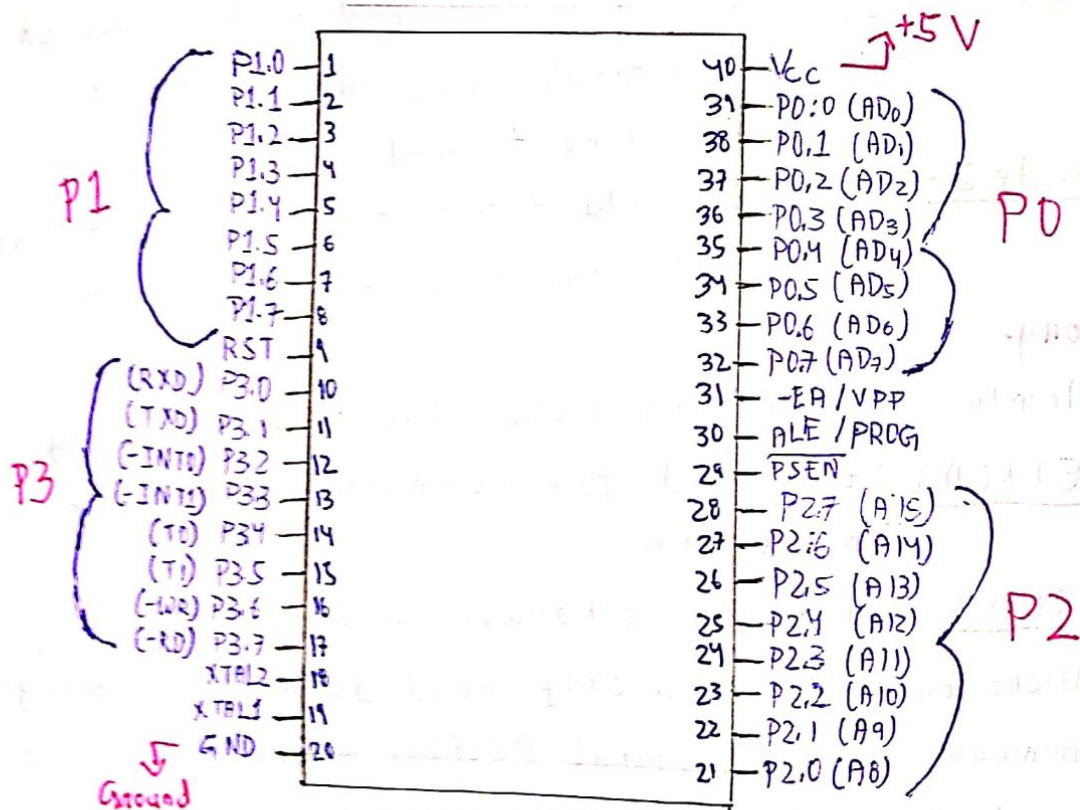 +5 V
P1.0 1
P1.1 2
P1.2 3
P1.3 4
P1.4 5
P1.5 6
P1.6 7
P1.7 8
RST 9
P1
(RXD) P3.0 10
(TXD) P3.1 11
(-INT0) P3.2 12
(-INT1) P3.3 13
(T0) P3.4 14
(T1) P3.5 15
(-WR) P3.6 16
(-RD) P3.7 17
P3
XTAL2 18
XTAL1 19
GND 20
Ground
40 Vcc
39 P0.0 (AD0)
38 P0.1 (AD1)
37 P0.2 (AD2)
36 P0.3 (AD3)
35 P0.4 (AD4)
34 P0.5 (AD5)
33 P0.6 (AD6)
32 P0.7 (AD7)
P0
31 -EA / VPP
30 ALE / PROG
29 PSEN
28 P2.7 (A15)
27 P2.6 (A14)
26 P2.5 (A13)
25 P2.4 (A12)
24 P2.3 (A11)
23 P2.2 (A10)
22 P2.1 (A9)
21 P2.0 (A8)
P2